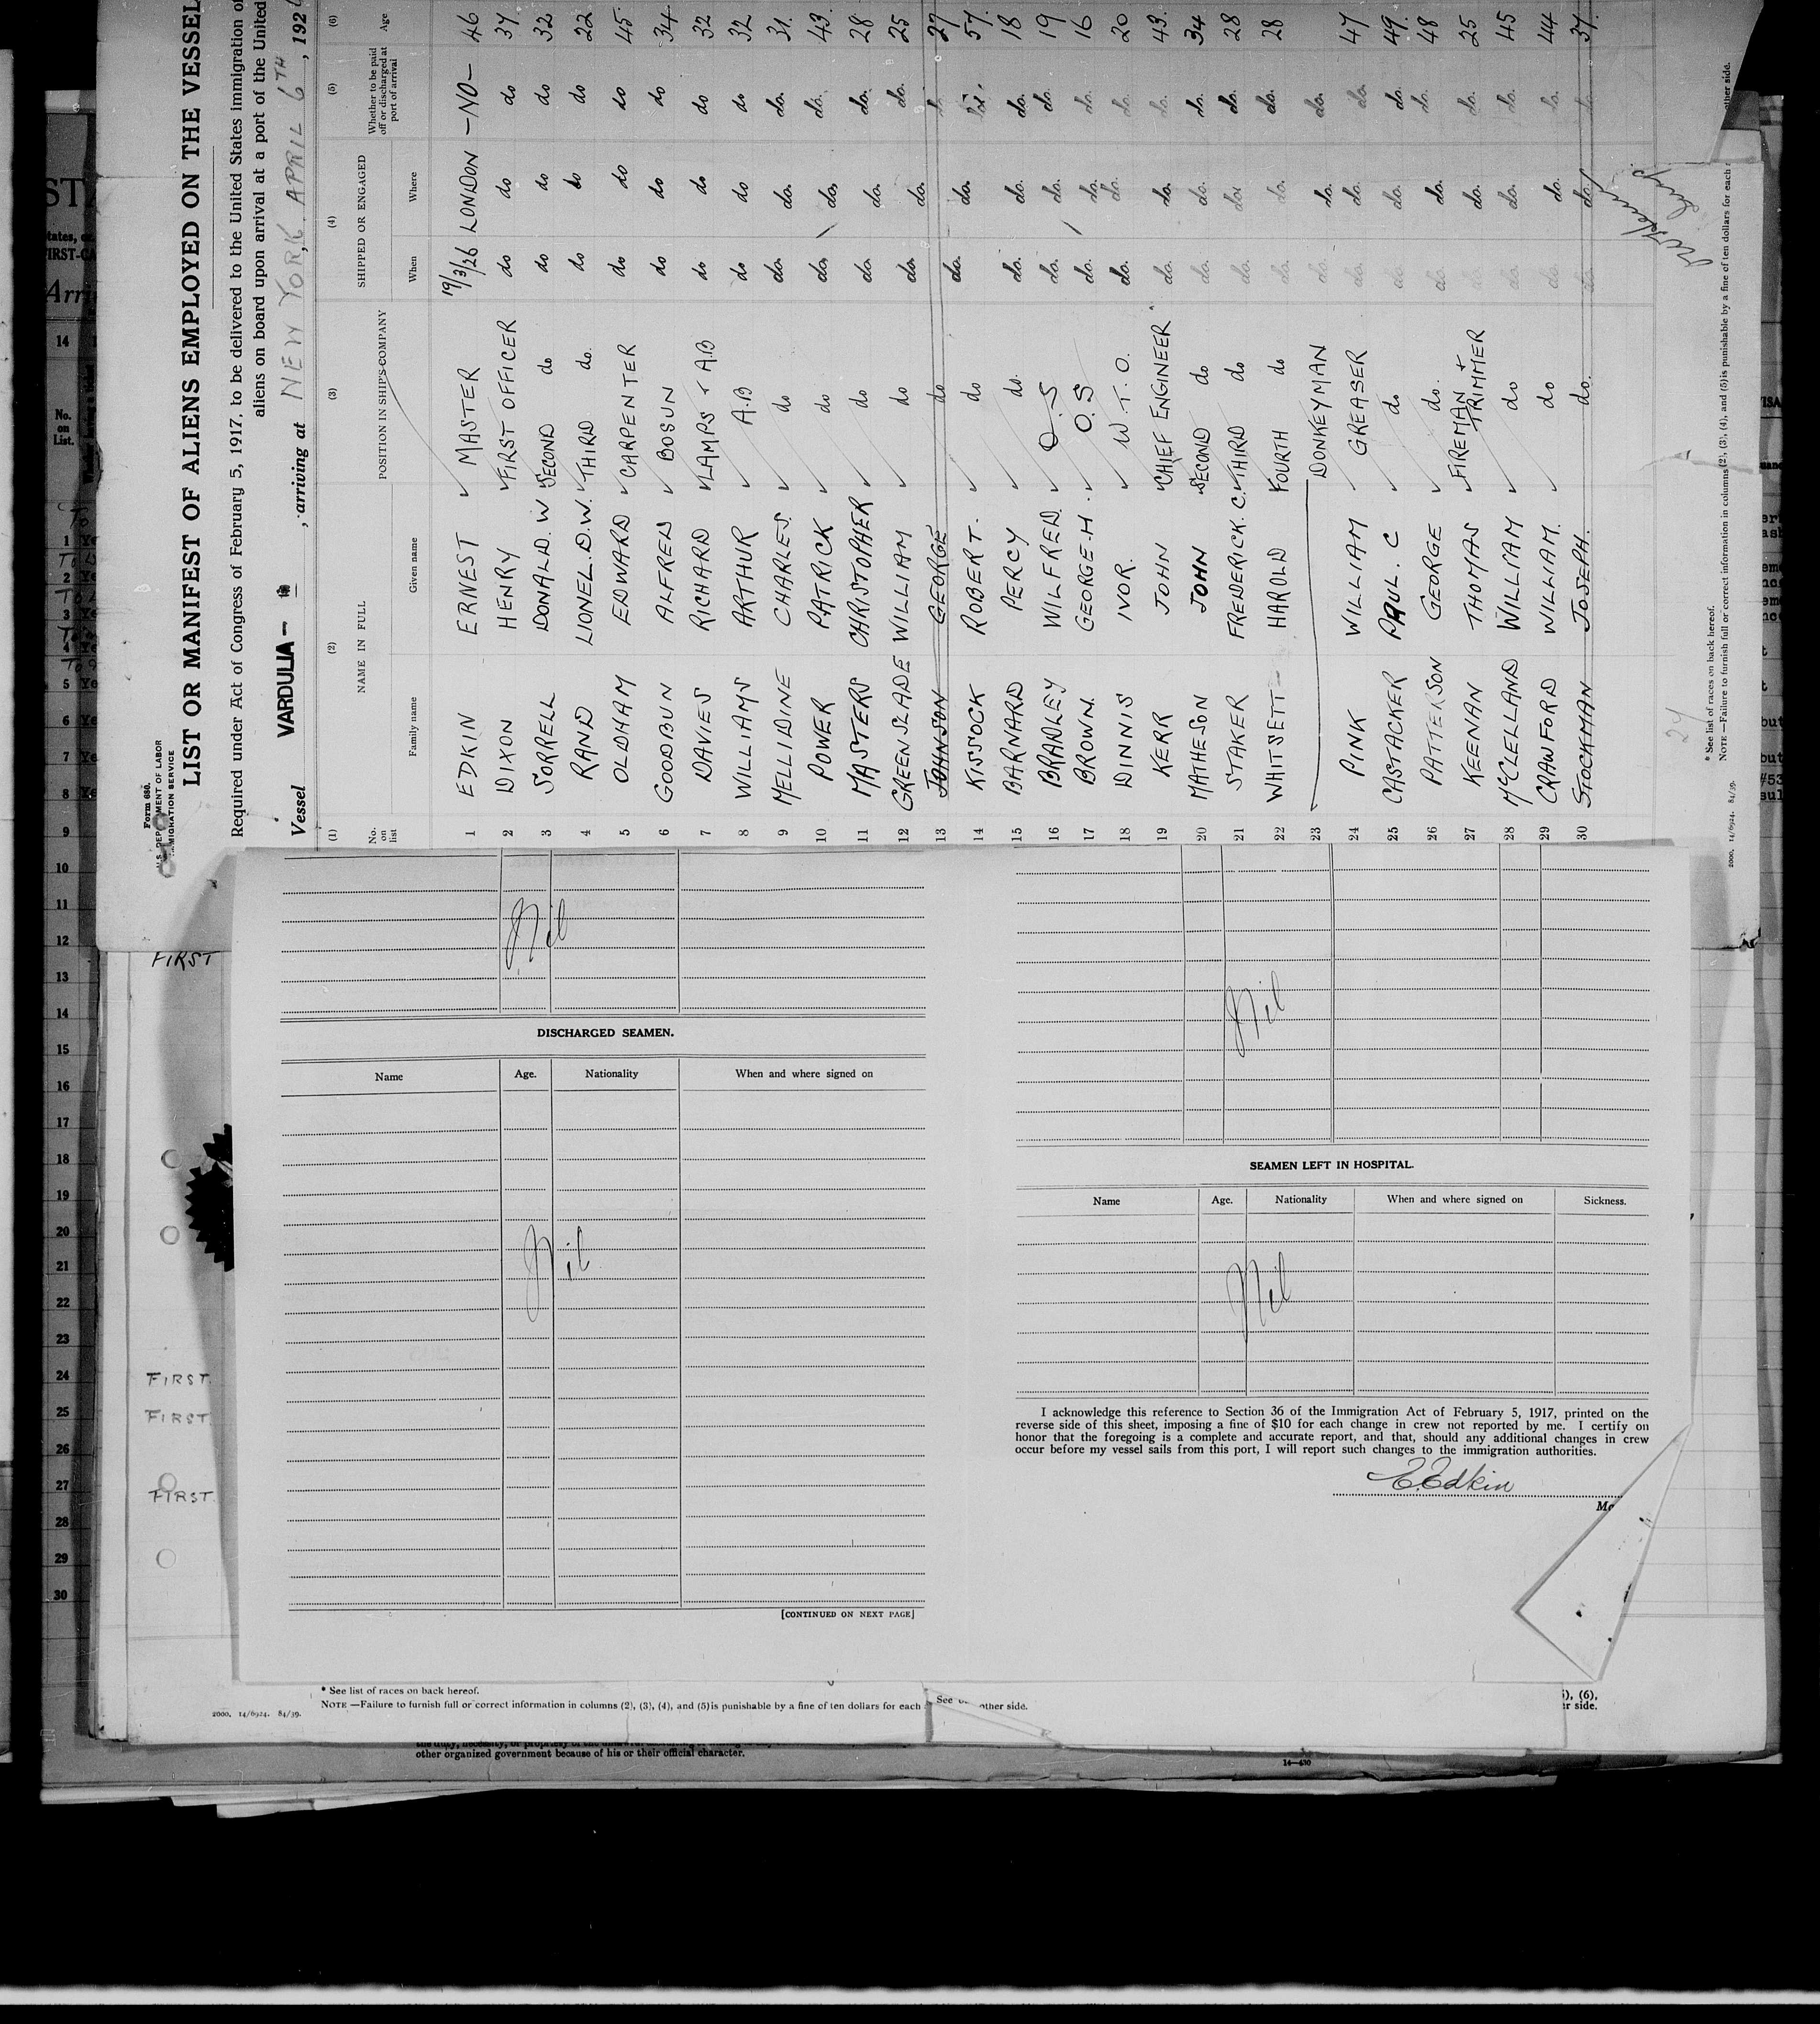 Form 680.
U.S. DEPARTMENT OF LABOR
IMMIGRATION SERVICE
LIST OR MANIFEST OF ALIENS EMPLOYED ON THE VESSEL
Required under Act of Congress of February 5, 1917, to be delivered to the United States immigration of
aliens on board upon arrival at a port of the United
Vessel VARDULIA – , arriving at NEW YORK. APRIL 6TH , 192
(1) (2) (3) (4) (5) (6)
No. on list NAME IN FULL POSITION IN SHIP'S COMPANY SHIPPED OR ENGAGED Whether to be paid off or discharged at port of arrival Age
Family name Given name When Where
1 EDKIN ERNEST MASTER 19/3/26 LONDON – NO – 46
2 DIXON HENRY FIRST OFFICER do do do 37
3 SORRELL DONALD. W SECOND do do do do 32
4 RAND LIONEL. D.W. THIRD do. do do do 22
5 OLDHAM EDWARD CARPENTER do do do 45
6 GOODBUN ALFRED BOSUN do do do 34
7 DAVIES RICHARD LAMPS & A.B do do do 32
8 WILLIAMS ARTHUR A.B do do do 32
9 MELLIDINE CHARLES. do do. do. do. 31.
10 POWER PATRICK do do. do. do. 43.
11 MASTERS CHRISTOPHER do do. do. do. 28
12 GREENSLADE WILLIAM do do. do. do. 25
13 JOHNSON GEORGE do do. do. 27
14 KISSOCK ROBERT. do do. 57.
15 BARNARD PERCY do. do. do. do. 18
16 BRADLEY WILFRED. O.S do. do. do. 19
17 BROWN. GEORGE. H. O.S do. do. do. 16
18 DINNIS IVOR. W.T.O. do. do. do. 20
19 KERR JOHN CHIEF ENGINEER do. do. do. 43.
20 MATHESON JOHN SECOND do do. do. do. 34
21 STAKER FREDERICK. C. THIRD do do. do. do. 28
22 WHITSETT – HAROLD FOURTH do do. do. do. 28
23 DONKEYMAN do. do. do.
24 PINK WILLIAM GREASER do. do. do. 47
25 CASTACKER PAUL. C do do. do. do. 49.
26 PATTERSON GEORGE do. do. do. do. 48
27 KEENAN THOMAS FIREMAN + TRIMMER do. do. do. 25
28 McCLELLAND WILLIAM do do. do. do. 45
29 CRAWFORD WILLIAM. do do do. do. 44
30 STOCKMAN JOSEPH. do. do. do. do. 37.
* See list of races on back hereof.
NOTE —Failure to furnish full or correct information in columns (2), (3), (4), and (5) is punishable by a fine of ten dollars for each
other side.
2000. 14/6924. 84/39.
24
14
No. on List.
1
2
3
4
5
6
7
8
9
10
11
12
13
14
15
16
17
18
19
20
21
22
23
24
25
26
27
28
29
30
FIRST
FIRST.
FIRST
FIRST.
Nil
DISCHARGED SEAMEN.
Name Age. Nationality When and where signed on
Nil
[CONTINUED ON NEXT PAGE]
Nil
SEAMEN LEFT IN HOSPITAL.
Name Age. Nationality When and where signed on Sickness.
Nil
I acknowledge this reference to Section 36 of the Immigration Act of February 5, 1917, printed on the
reverse side of this sheet, imposing a fine of $10 for each change in crew not reported by me. I certify on
honor that the foregoing is a complete and accurate report, and that, should any additional changes in crew
occur before my vessel sails from this port, I will report such changes to the immigration authorities.
E. Edkin
* See list of races on back hereof.
NOTE —Failure to furnish full or correct information in columns (2), (3), (4), and (5) is punishable by a fine of ten dollars for each
See other side.
(6),
side.
2000. 14/6924. 84/39.
other organized government because of his or their official character.
14—430